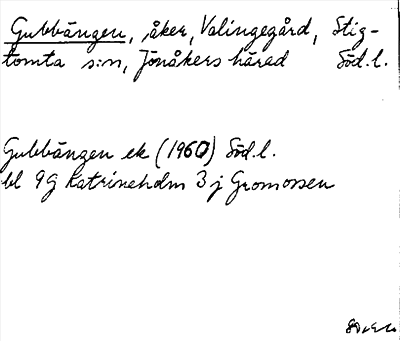 Gubbängen, åker, Valingegård, Stig-
tomta s:n, Jönåkers härad Söd.l.
Gubbängen ek (1960) Söd.l.
bl 9G Katrineholm 3 j Gromossen